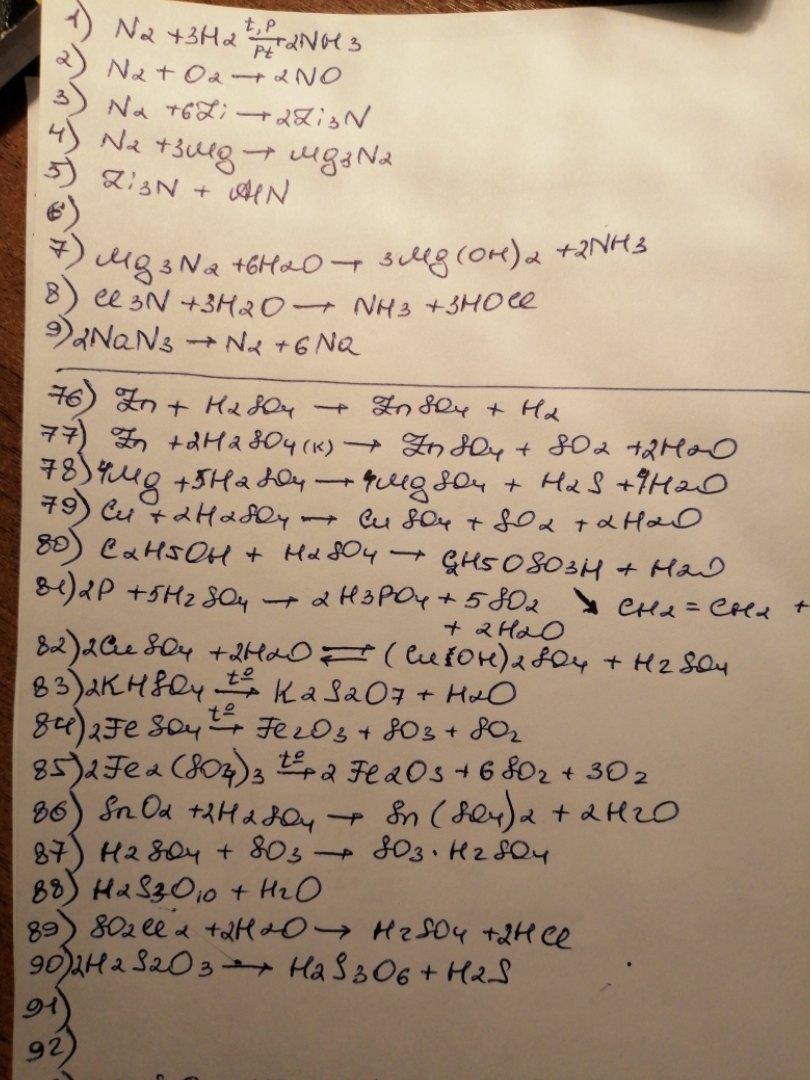 1) N2 + 3H2 t,p → Pt 2NH3
2) N2 + O2 → 2NO
3) N2 + 6Li → 2Li3N
4) N2 + 3Mg → Mg3N2
5) Li3N + AlN
6)
7) Mg3N2 + 6H2O → 3Mg(OH)2 + 2NH3
8) Cl3N + 3H2O → NH3 + 3HOCl
9) 2NaN3 → N2 + 6Na
76) Zn + H2SO4 → ZnSO4 + H2
77) Zn + 2H2SO4(к) → ZnSO4 + SO2 + 2H2O
78) 4Mg + 5H2SO4 → 4MgSO4 + H2S + 4H2O
79) Cu + 2H2SO4 → CuSO4 + SO2 + 2H2O
80) C2H5OH + H2SO4 → C2H5OSO3H + H2O
↘ CH2 = CH2 +
81) 2P + 5H2SO4 → 2H3PO4 + 5SO2
+ 2H2O
82) 2CuSO4 + 2H2O ⇌ (Cu(OH)2SO4 + H2SO4
83) 2KHSO4 t° → K2S2O7 + H2O
84) 2FeSO4 t° → Fe2O3 + SO3 + SO2
85) 2Fe2(SO4)3 t° → 2Fe2O3 + 6SO2 + 3O2
86) SnO2 + 2H2SO4 → Sn(SO4)2 + 2H2O
87) H2SO4 + SO3 → SO3·H2SO4
88) H2S3O10 + H2O
89) SO2Cl2 + 2H2O → H2SO4 + 2HCl
90) 2H2S2O3 → H2S3O6 + H2S
91)
92)